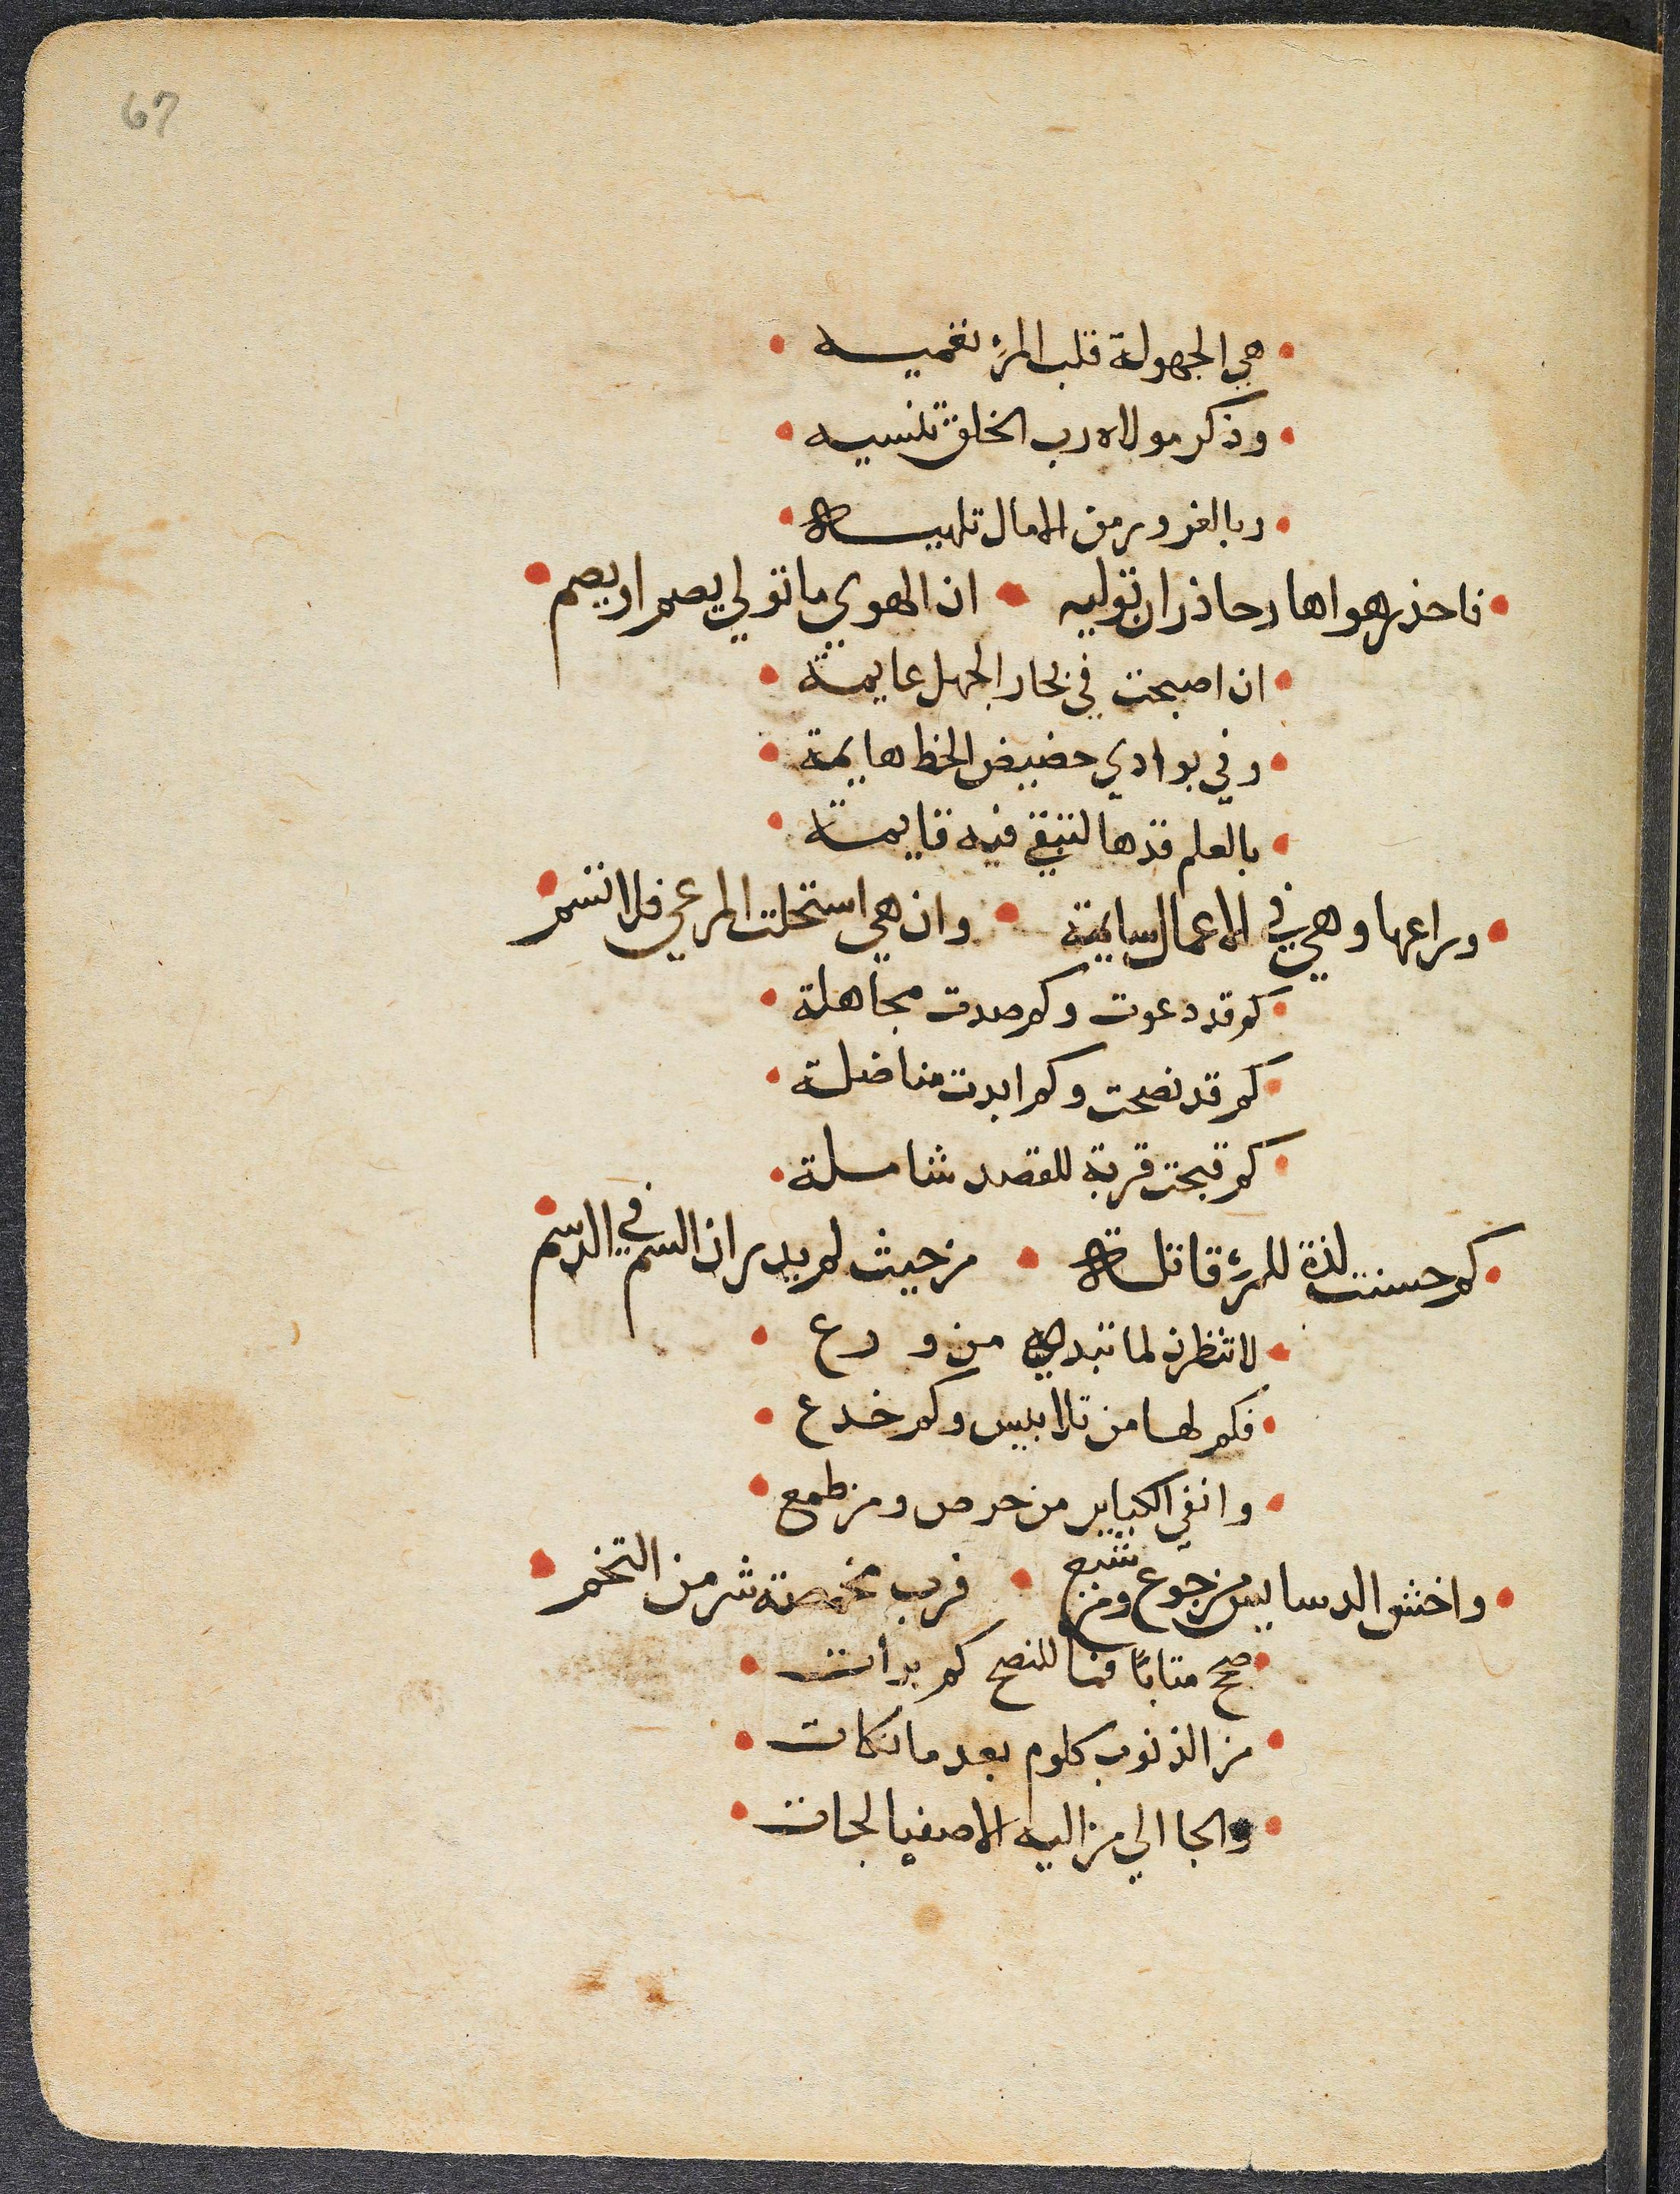 67
هي الجهولة قلب المرء تغميه
وذكر مولاه رب الخلق تنسيه
وبالغرور من الامال تلهيه
فاحذر هواها وحاذر ان توليه ان الهوي ما تولي يصم او يصم
ان اصبحت في بحار الجهل عايمة
وفي بوادي حضيض الخط هايمة
بالعلم قدها لتبقي فيه قايمة
وراعها وهي في الاعمال سايمة وان هي استحلت المرعي فلا تسم
كم قد دعوت وكم صدت مجاهلة
كم قد نصحت وكم ابدت مناضلة
كم قبحت قربة للقصد شاملة
كم حسنت لذة للمرء قاتلة من حيث لم يدر ان السم في الدسم
لا تنظرن لما تبديه من ورع
فكم لها من تلابيس وكم خدع
وانفي الكباير من حرص ومن طمع
واخش الدسايس من جوع ومن شبع فرب مخمصة شر من التخم
صح متابًا فما للنصح كم برأت
من الذنوب كلوم بعد ما نكات
والجا الي من اليه الاصفيا لجات